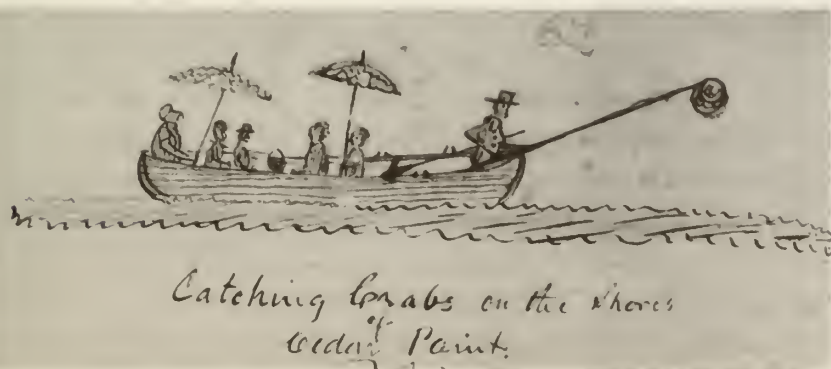 Catching Crabs on the Shores
of
Cedar Point.